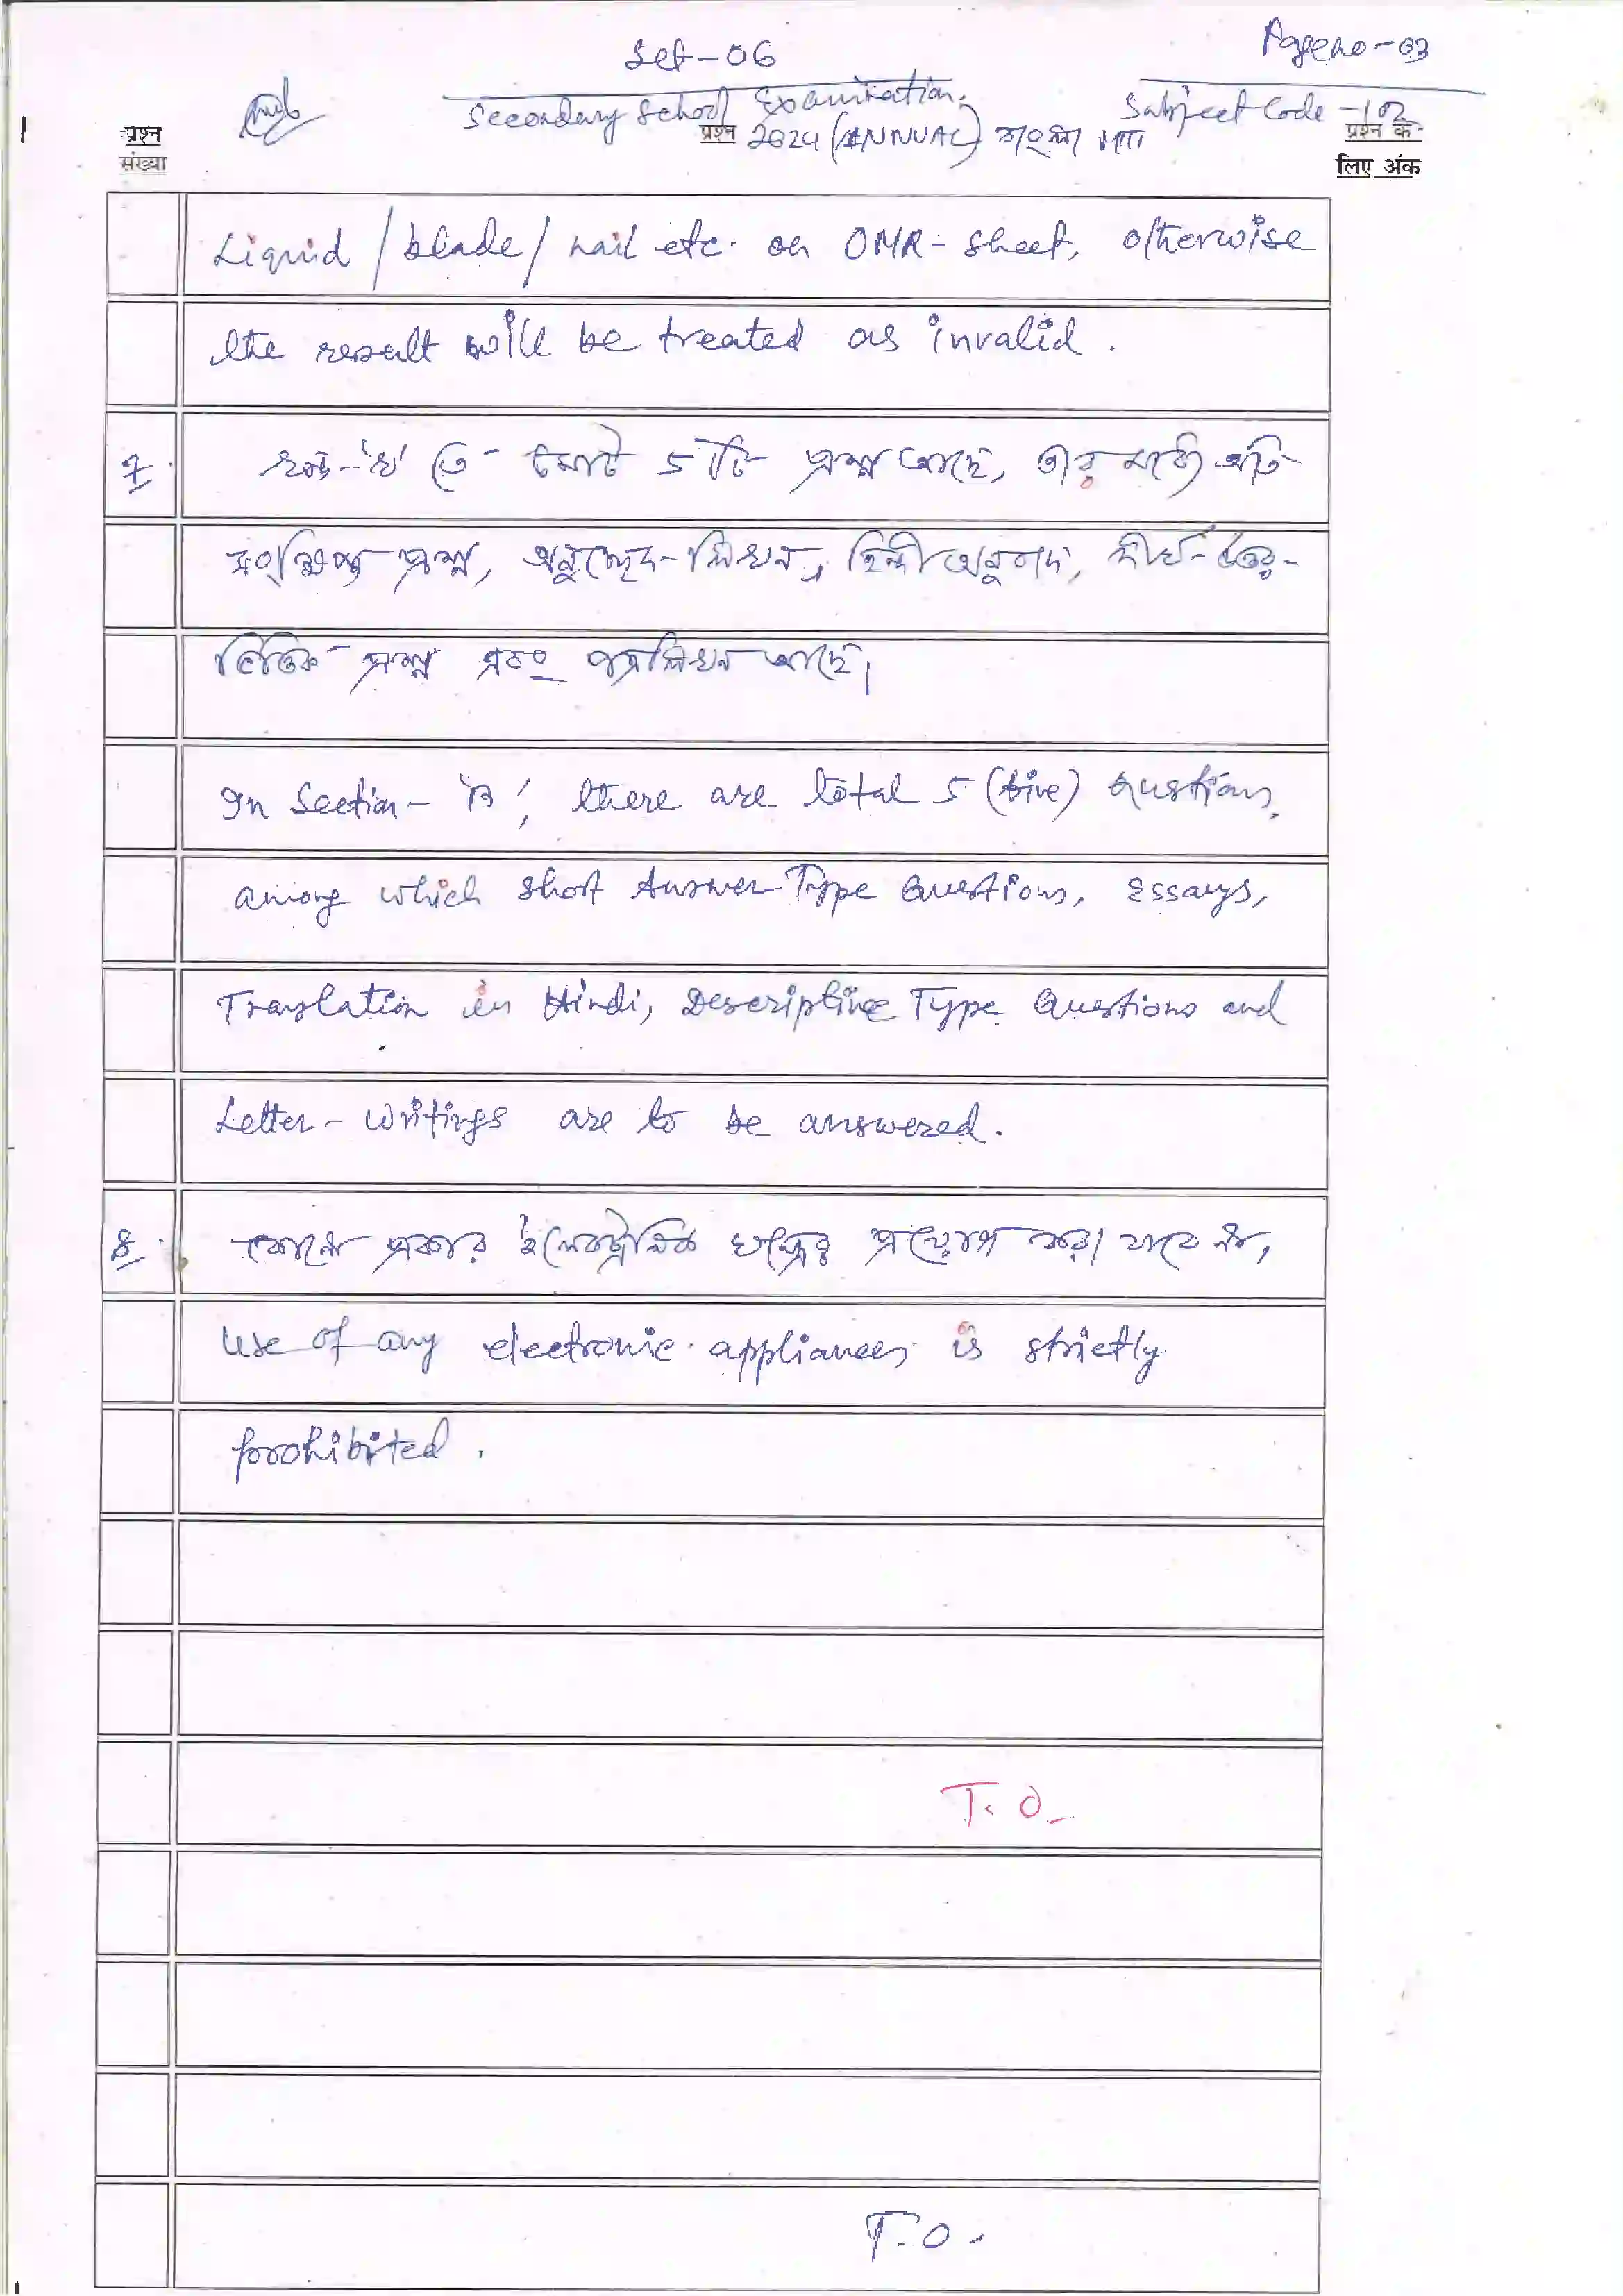 Set-06
Page no-03
Secondary School Examination,
Subject Code -102
प्रश्न
प्रश्न 2024 (ANNUAL) বাংলা
प्रश्न के
संख्या
लिए अंक
Liquid / blade / nail etc. on OMR - sheet, otherwise
the result will be treated as invalid.
7. খণ্ড-'খ' তে মোট ৫ টি প্রশ্ন আছে, তার মধ্যে অতি
সংক্ষিপ্ত প্রশ্ন, অনুচ্ছেদ-লিখন, হিন্দী অনুবাদ, দীর্ঘ-উত্তর-
ভিত্তিক প্রশ্ন এবং পত্রলিখন আছে।
In Section - 'B', there are total 5 (five) Qustions,
among which short Answer Type Questions, Essays,
Translation in Hindi, Descriptive Type Questions and
Letter - Writings are to be answered.
8. কোনো প্রকার ইলেকট্রনিক যন্ত্রের প্রয়োগ করা যাবে না,
Use of any electronic appliances is strictly
prohibited.
T. O.
T. O.